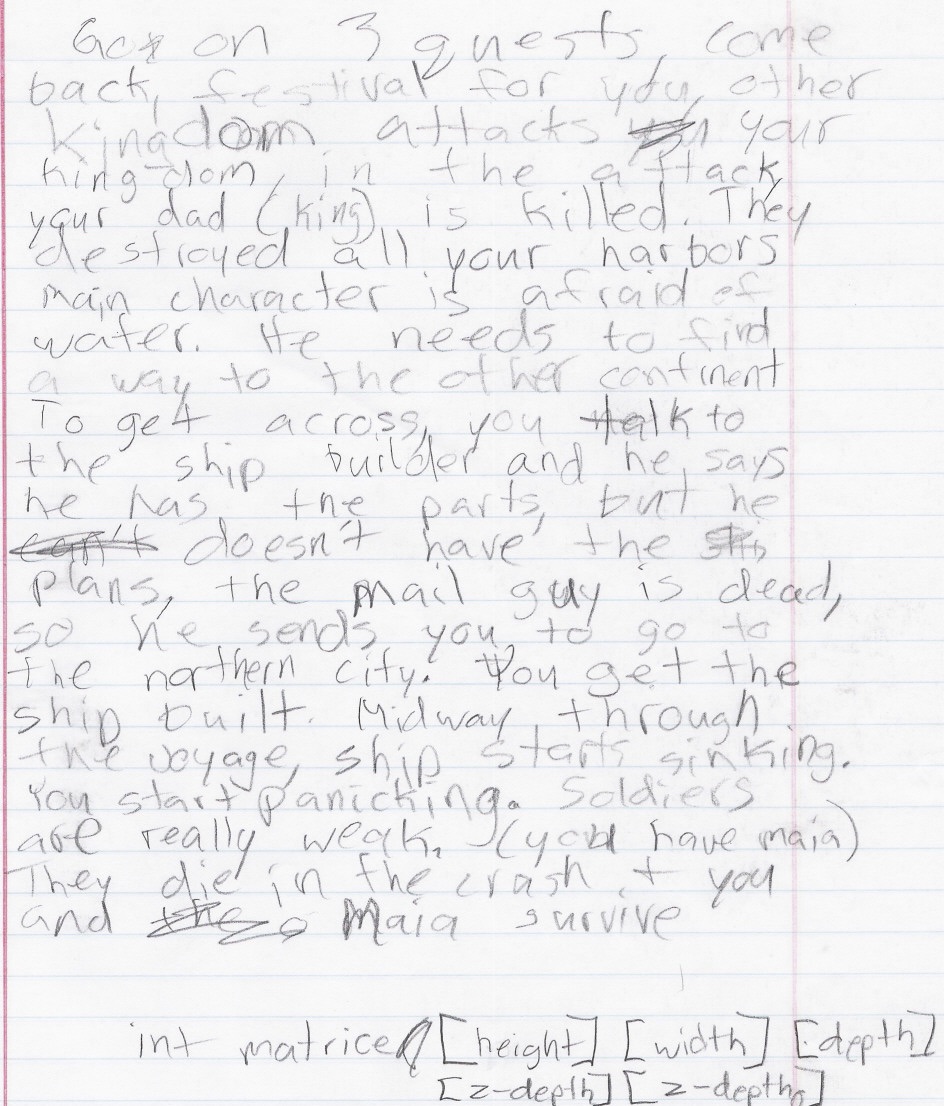 Go on 3 quests, come
back, festival for you, other
kingdom attacks your
kingdom, in the attack
your dad (king) is killed. They
destroyed all your harbors
main character is afraid of
water. He needs to find
a way to the other continent
To get across, you talk to
the ship builder and he says
he has the parts, but he
can't doesn't have the
plans, the mail guy is dead,
so he sends you to go to
the northern city. You get the
ship built. Midway through
the voyage, ship starts sinking.
You start panicking. Soldiers
are really weak. (you have maia)
They die in the crash + you
and the Maia survive
int matrice [height] [width] [depth]
[z-depth] [z-depth]